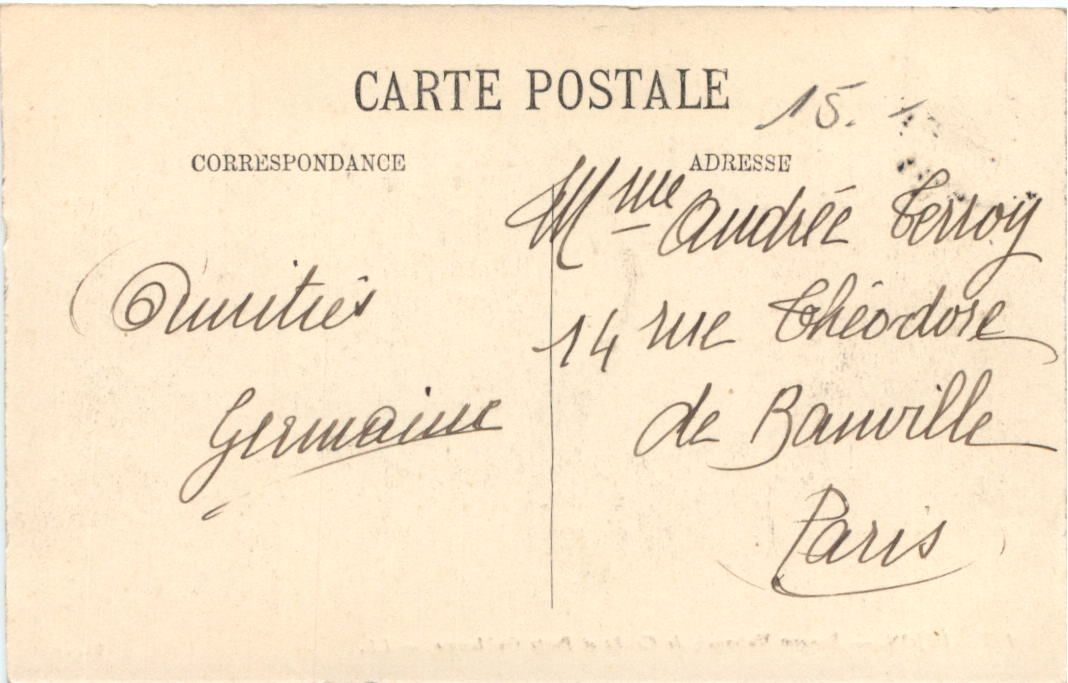 CARTE POSTALE
15.
CORRESPONDANCE
ADRESSE
Amitiés
Germaine
Mme Andrée Terroy
14 rue Théodore
de Banville
Paris